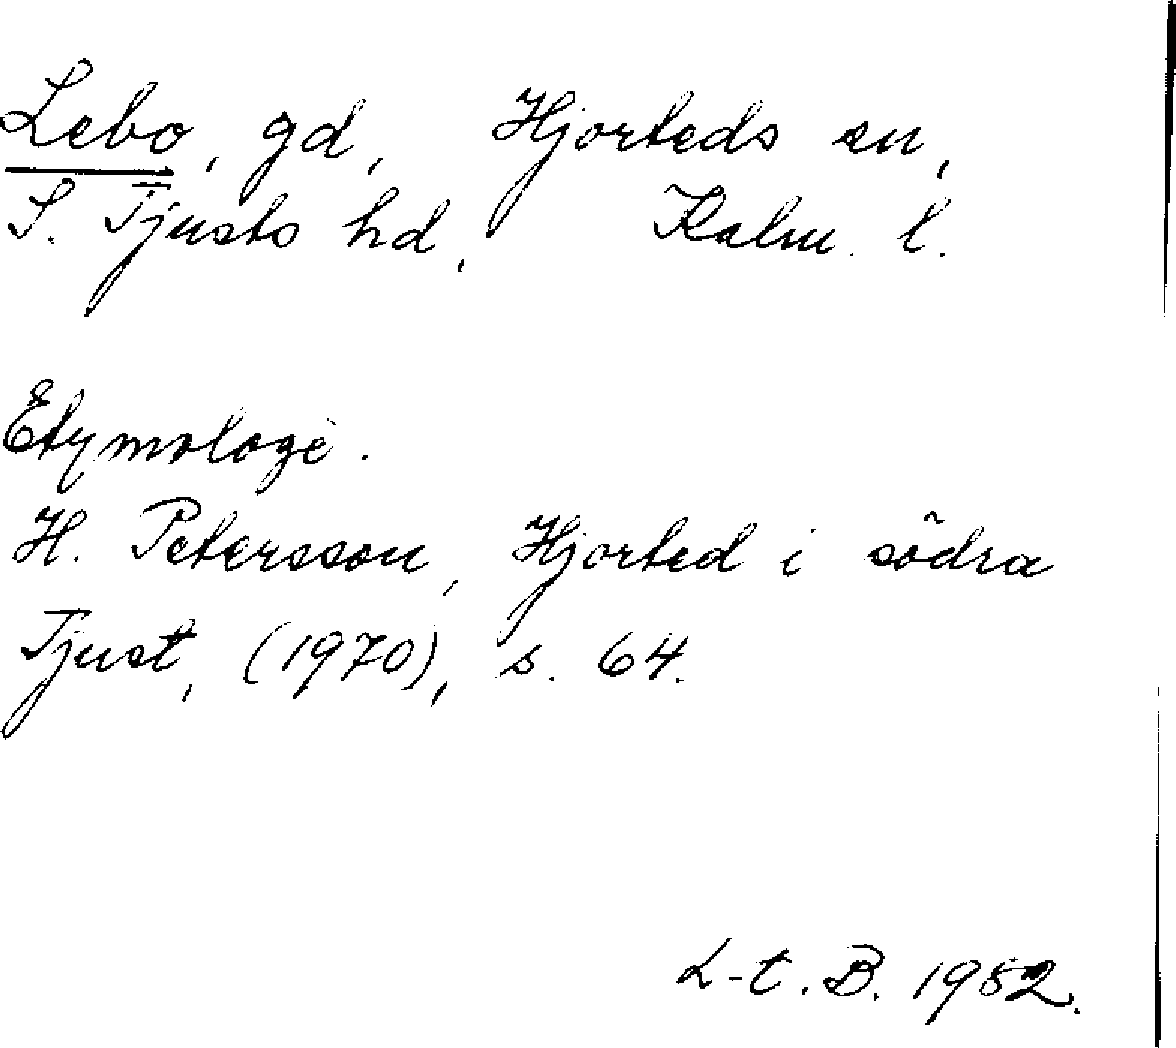 Lebo, gd, Hjorteds sn,
S. Tjusts hd, Kalm. l.
Etymologi.
H. Petersson, Hjorted i södra
Tjust, (1970), s. 64.
L-t. B. 1982.